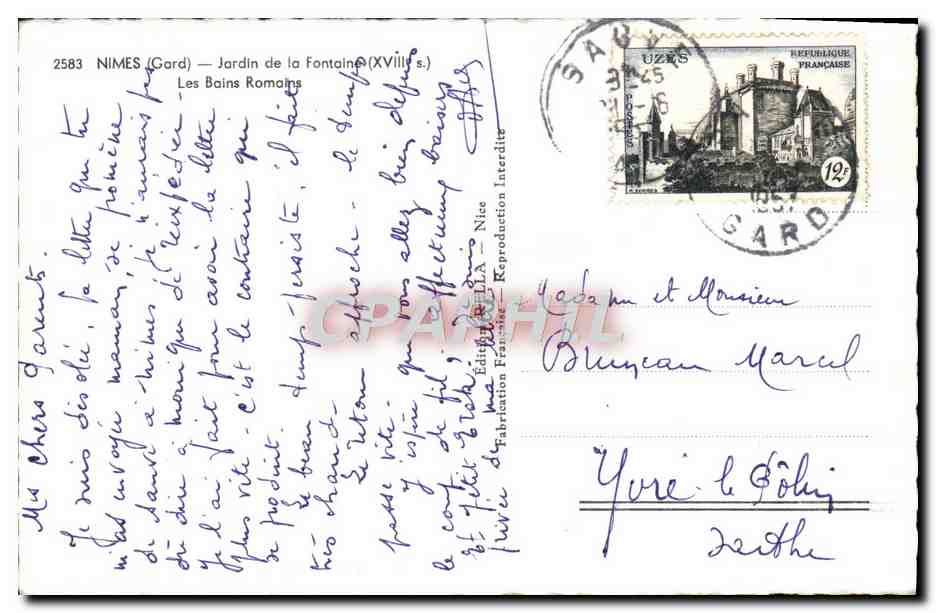 2583 NIMES (Gard) — Jardin de la Fontaine (XVIIIe s.)
Les Bains Romains
Mes chers Parents.
Je suis désolée, la lettre que tu
m'as envoyée maman, se promène
de Sauve à Nîmes, je n'aurais pas
dû dire à monique de l'expédier
je l'ai fait pour avoir la lettre
plus vite. c'est le contraire qui
se produit.
Le beau temps persiste. il fait
très chaud.
Le retour approche. le temps
passe vite.
J'espère que vous allez bien depuis
le coup de fil, affectueux baisers
Et petit
privée de ma
Édition RELLA — Nice
Fabrication Française — Reproduction Interdite
CPAPHIL
SAUVE
GARD
1957
UZÈS
REPUBLIQUE
FRANÇAISE
POSTES
12F
Madame et Monsieur
Bruneau Marcel
Yvré-le-Pôlin
Sarthe